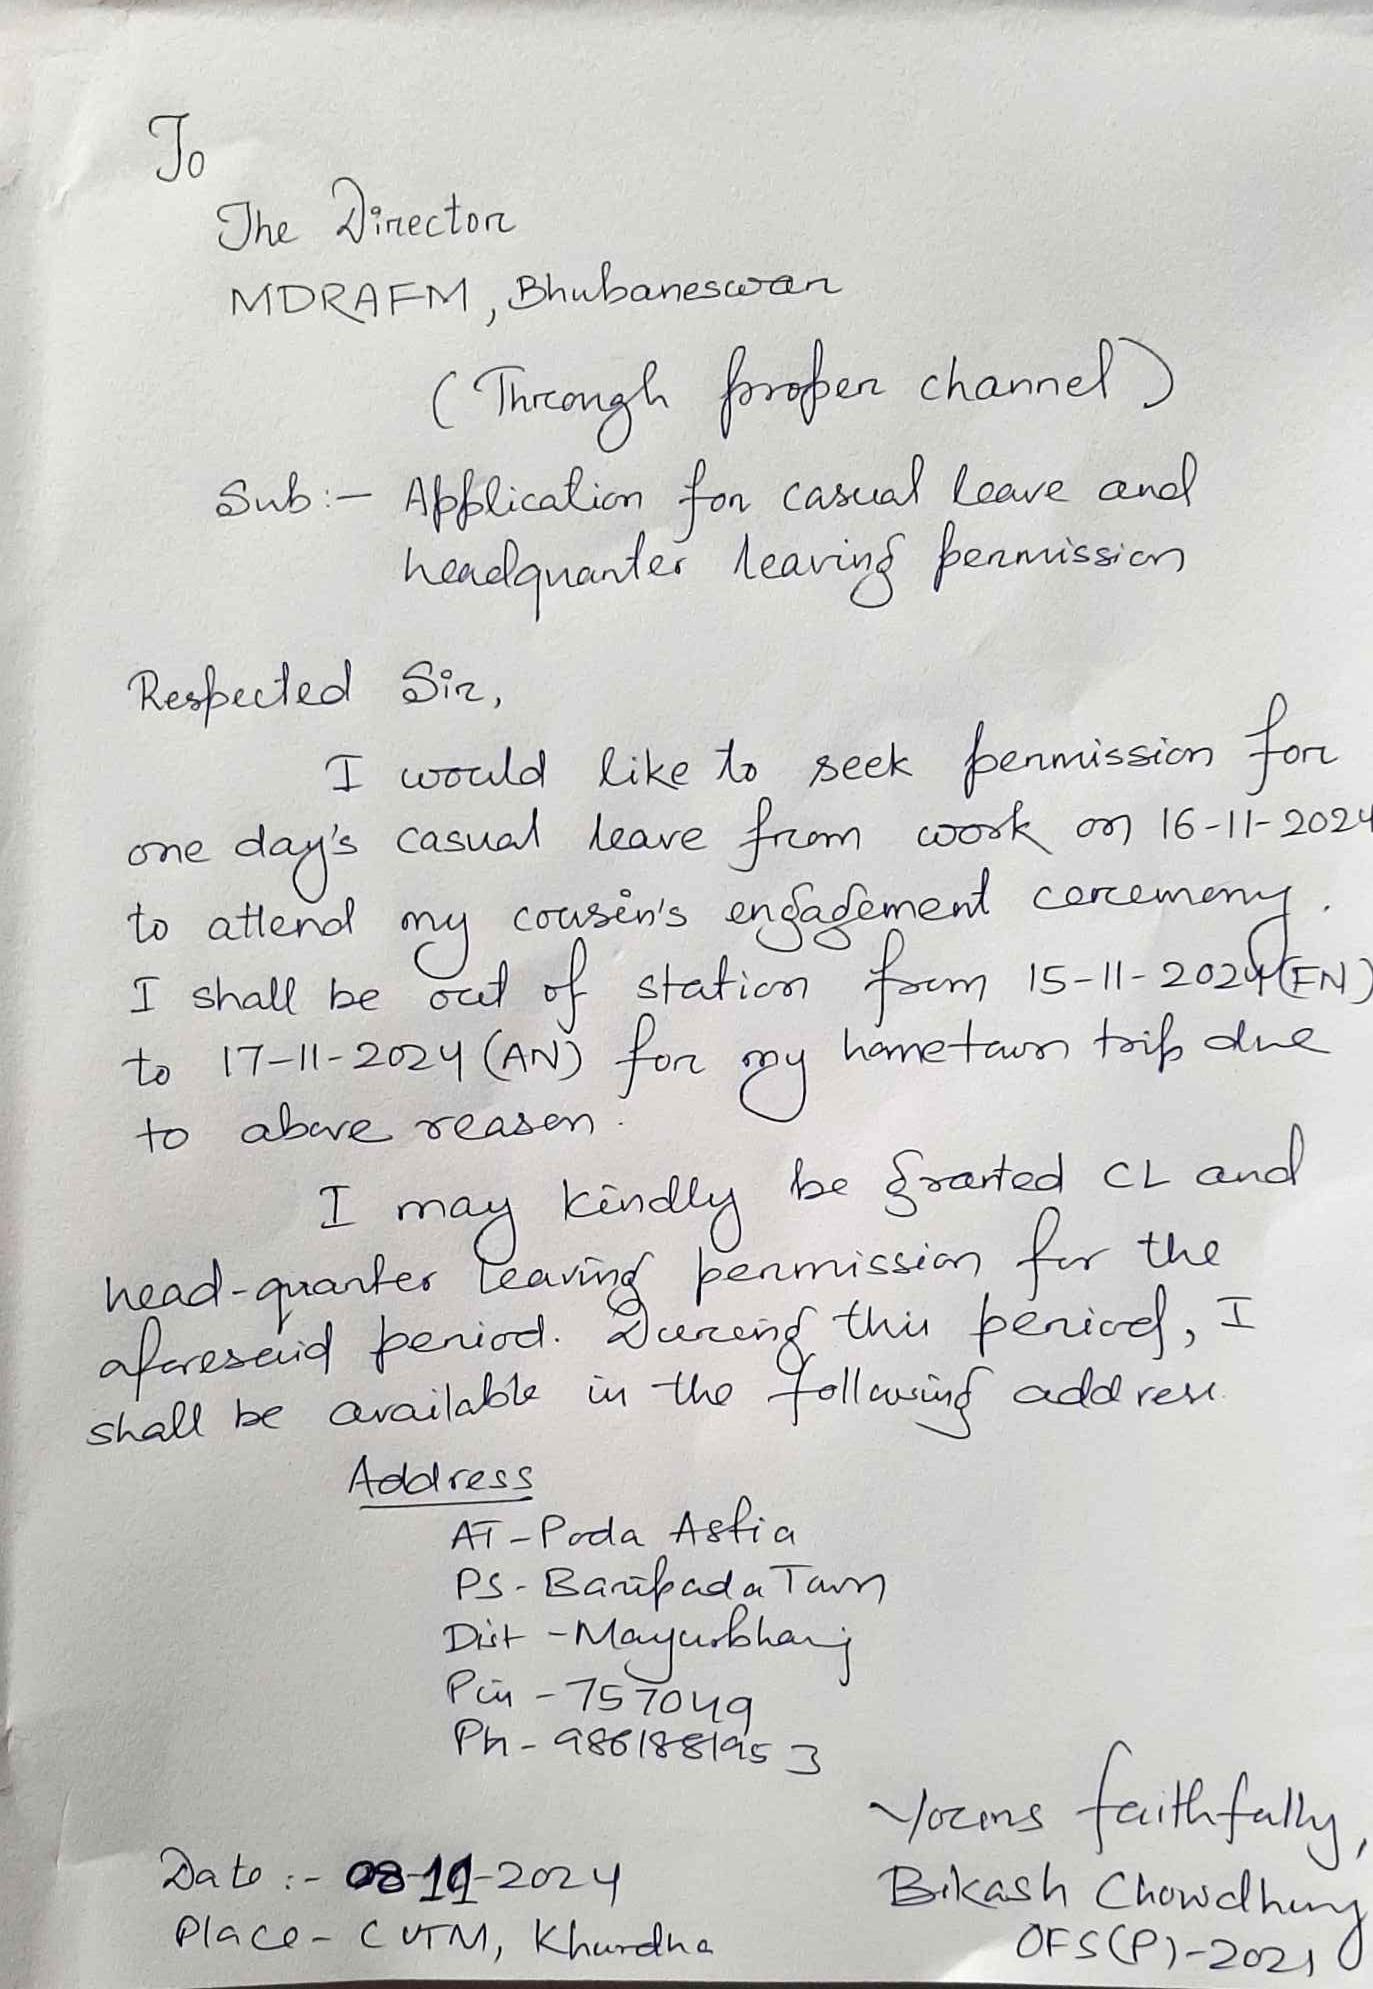 To
The Director
MDRAFM, Bhubaneswar
(Through proper channel)
Sub:- Application for casual leave and
headquarter leaving permission
Respected Sir,
I would like to seek permission for
one day's casual leave from work on 16-11-2024
to attend my cousin's engagement ceremony.
I shall be out of station from 15-11-2024(FN)
to 17-11-2024 (AN) for my hometown trip due
to above reason.
I may kindly be granted CL and
head-quarter leaving permission for the
aforesaid period. During this period, I
shall be available in the following address.
Address
AT-Poda Astia
PS-Baripada Town
Dist-Mayurbhanj
Pin-757049
Ph-9861881953
Yours faithfully,
Bikash Chowdhury
OFS(P)-2021
Date:- 08-11-2024
Place- CUTM, Khurdha